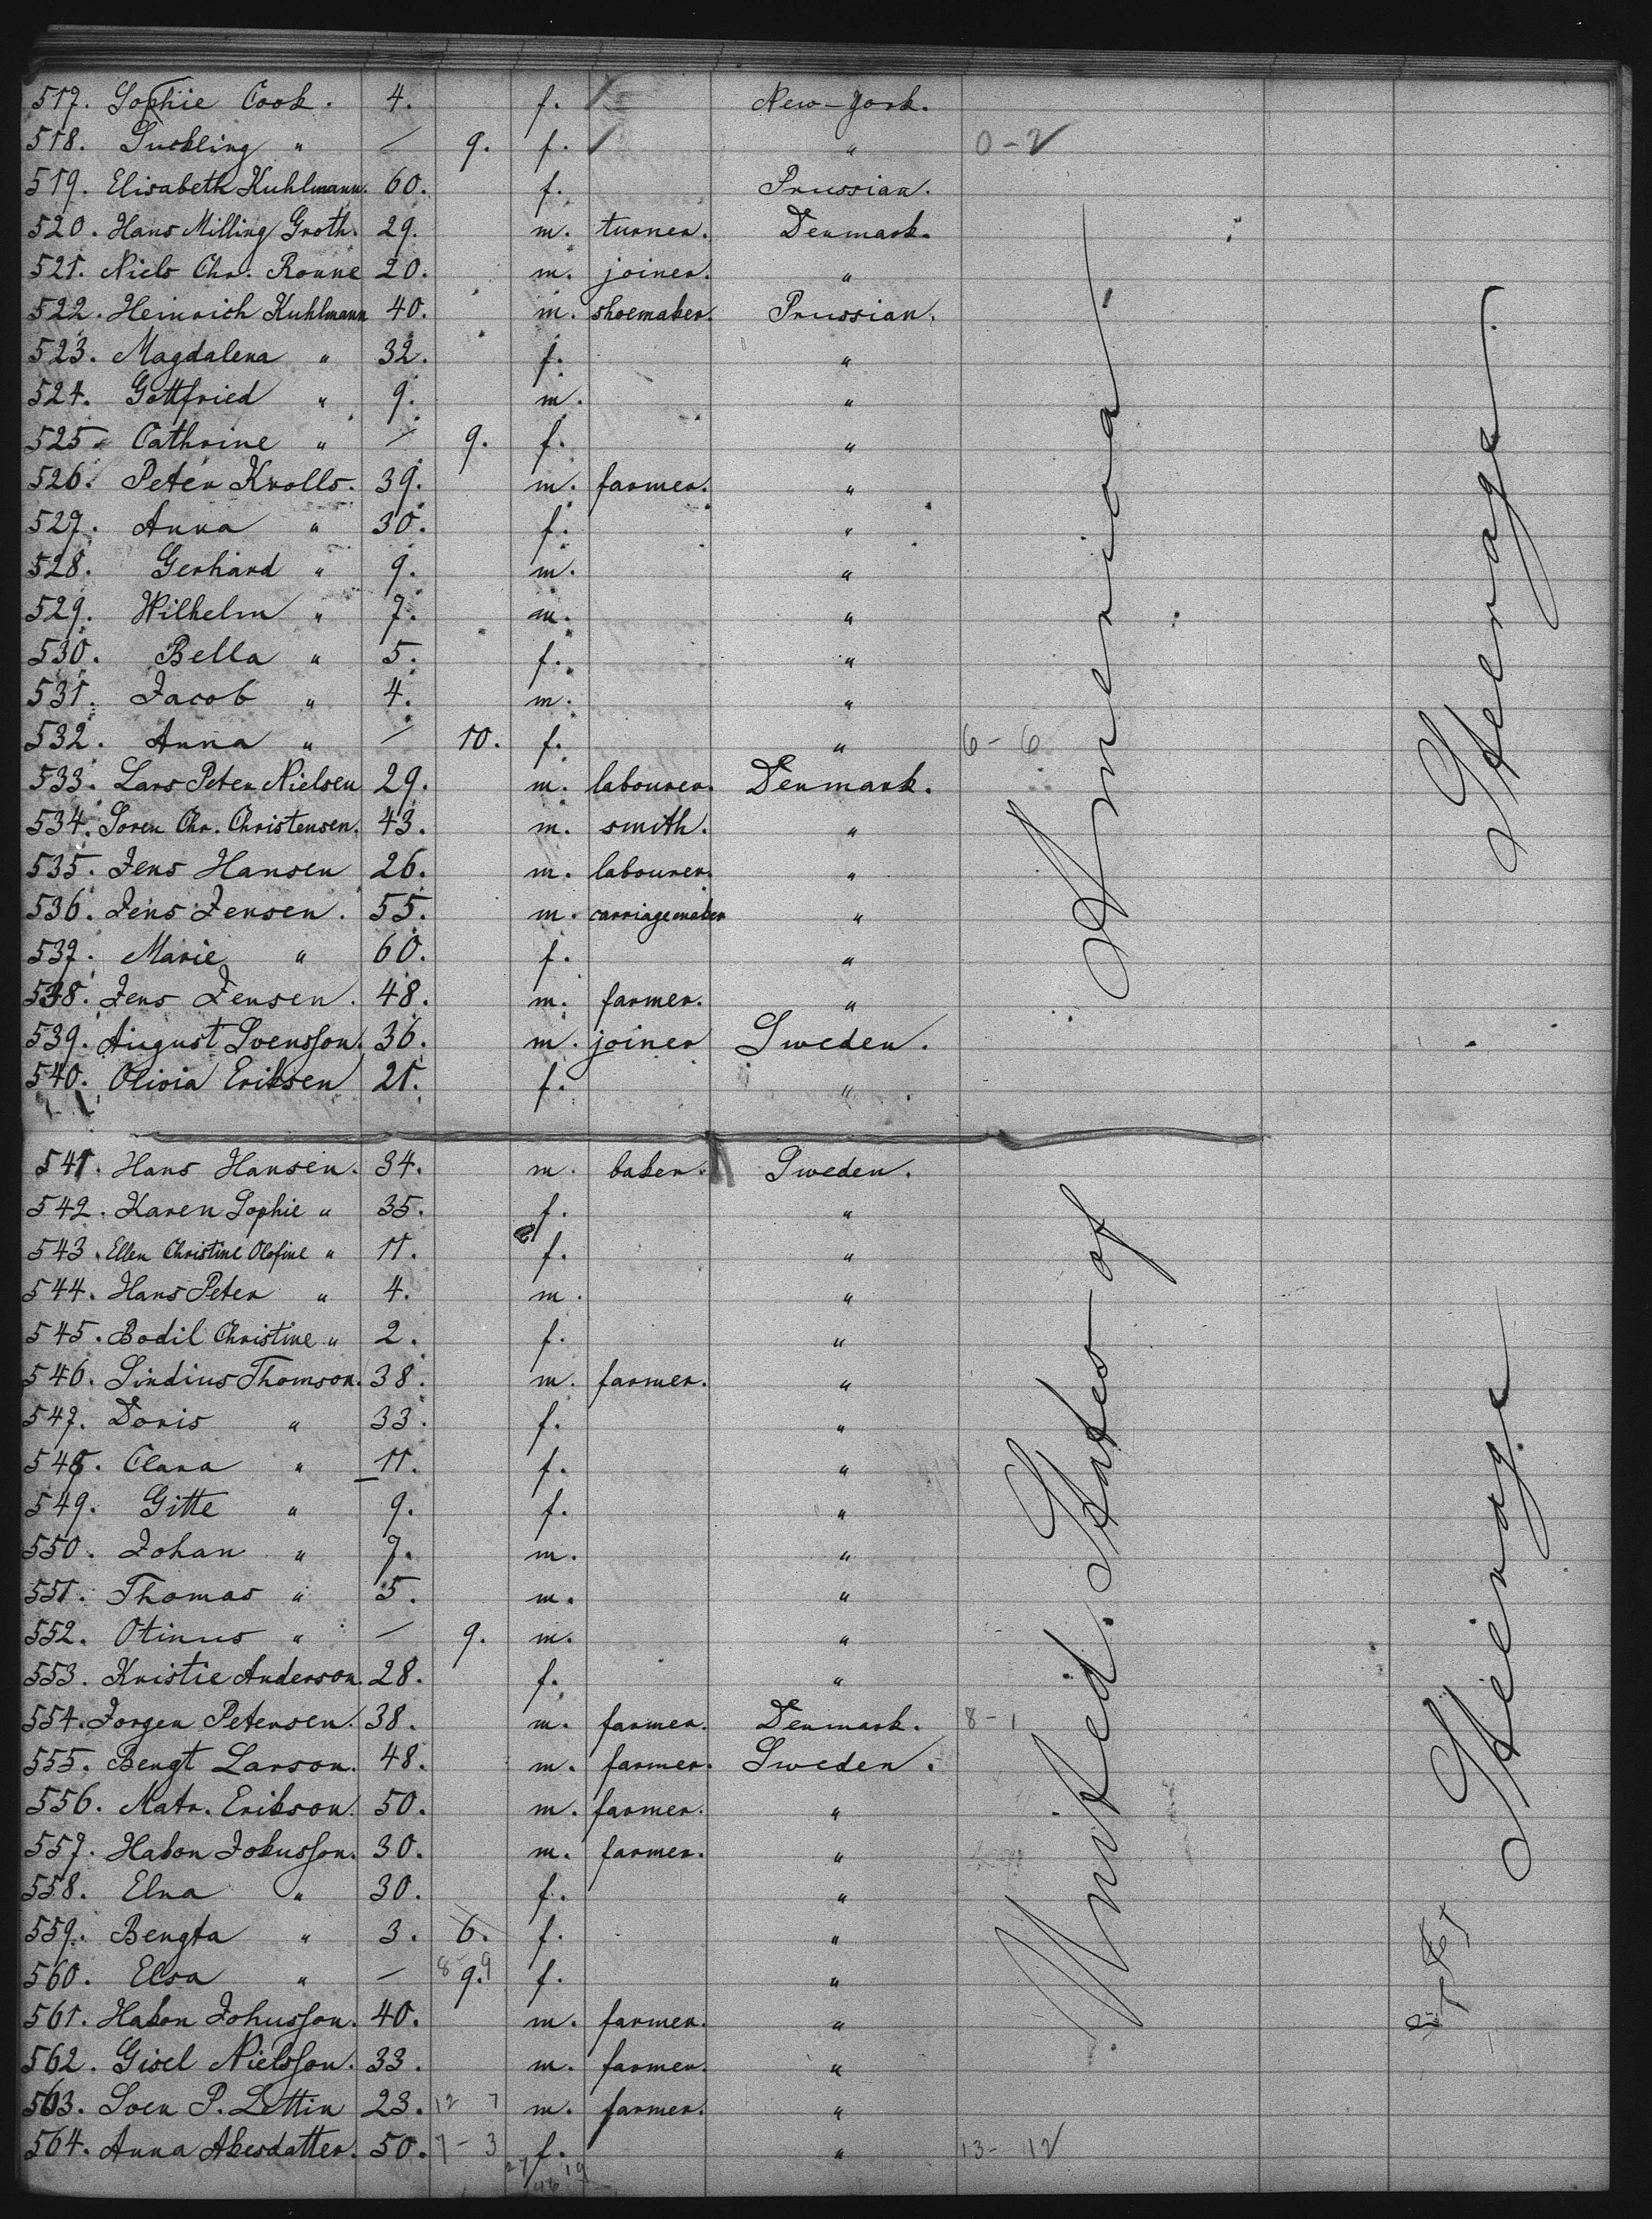 517. Sophie Cook. 4. f. New-York.
518. Suckling " / 9. f. " 0-2
519. Elisabeth Kuhlmann. 60. f. Prussian.
520. Hans Milling Groth. 29. m. turner. Denmark.
521. Niels Chr. Ronne 20. m. joiner. "
522. Heinrich Kuhlmann 40. m. shoemaker. Prussian.
523. Magdalena " 32. f. "
524. Gottfried " 9. m. "
525. Cathrine " / 9. f. "
526. Peter Krolls. 39. m. farmer. "
527. Anna " 30. f. "
528. Gerhard " 9. m. "
529. Wilhelm " 7. m. "
530. Bella " 5. f. "
531. Jacob " 4. m. "
532. Anna " / 10. f. " 6-6
533. Lars Peter Nielsen 29. m. labourer. Denmark.
534. Soren Chr. Christensen. 43. m. smith. "
535. Jens Hansen 26. m. labourer. "
536. Jens Jensen. 55. m. carriagemaker "
537. Marie " 60. f. "
538. Jens Jensen. 48. m. farmer. "
539. August Svensson. 36. m. joiner Sweden.
540. Olivia Eriksen 21. f. "
541. Hans Hansen. 34. m. baker. Sweden.
542. Karen Sophie " 35. f. "
543. Ellen Christine Olofine " 11. f. "
544. Hans Peter " 4. m. "
545. Bodil Christine " 2. f. "
546. Sindius Thomson. 38. m. farmer. "
547. Doris " 33. f. "
548. Clara " 11. f. "
549. Gitte " 9. f. "
550. Johan " 7. m. "
551. Thomas " 5. m. "
552. Otinus " / 9. m. "
553. Kristie Anderson. 28. f. "
554. Jorgen Petersen. 38. m. farmer. Denmark. 8-1
555. Bengt Larson. 48. m. farmer. Sweden.
556. Matr. Erikson. 50. m. farmer. "
557. Hakon Johusson. 30. m. farmer. "
558. Elna " 30. f. "
559. Bengta " 3. 6. f. "
560. Elsa " — 9. f. "
561. Hakon Johusson. 40. m. farmer. "
562. Gisel Nielsson. 33. m. farmer. "
563. Sven P. Lettin 23. 12 7 m. farmer. "
564. Anna Akesdatter. 50. 7-3 f. " 13-12
United States of America
Steerage
Steerage